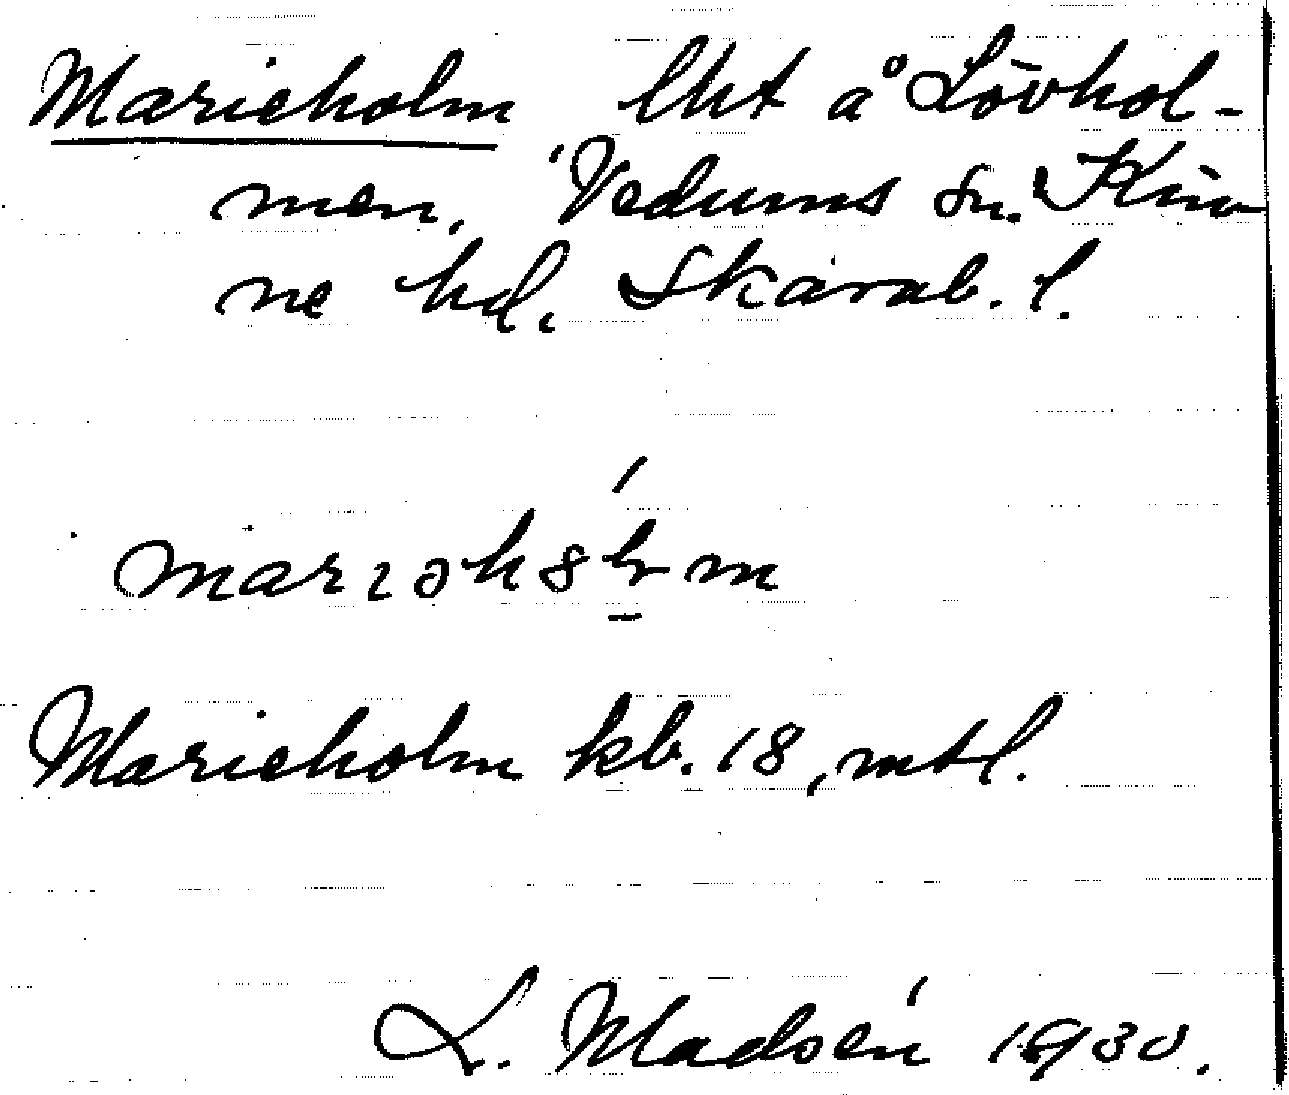 Marieholm lht å Lövhol-
men, Vedums sn. Kin-
ne hd, Skarab. l.
Marieholm kb. 18, mtl.
L. Madsén 1930.